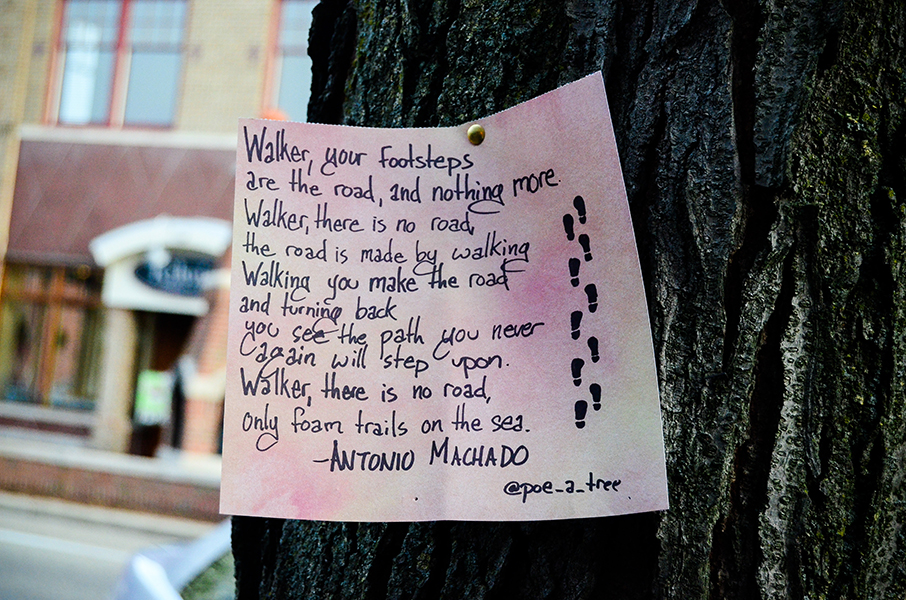 Walker, your footsteps
are the road, and nothing more.
Walker, there is no road,
the road is made by walking
Walking you make the road
and turning back
you see the path you never
again will step upon.
Walker, there is no road,
only foam trails on the sea.
-ANTONIO MACHADO
@poe_a_tree